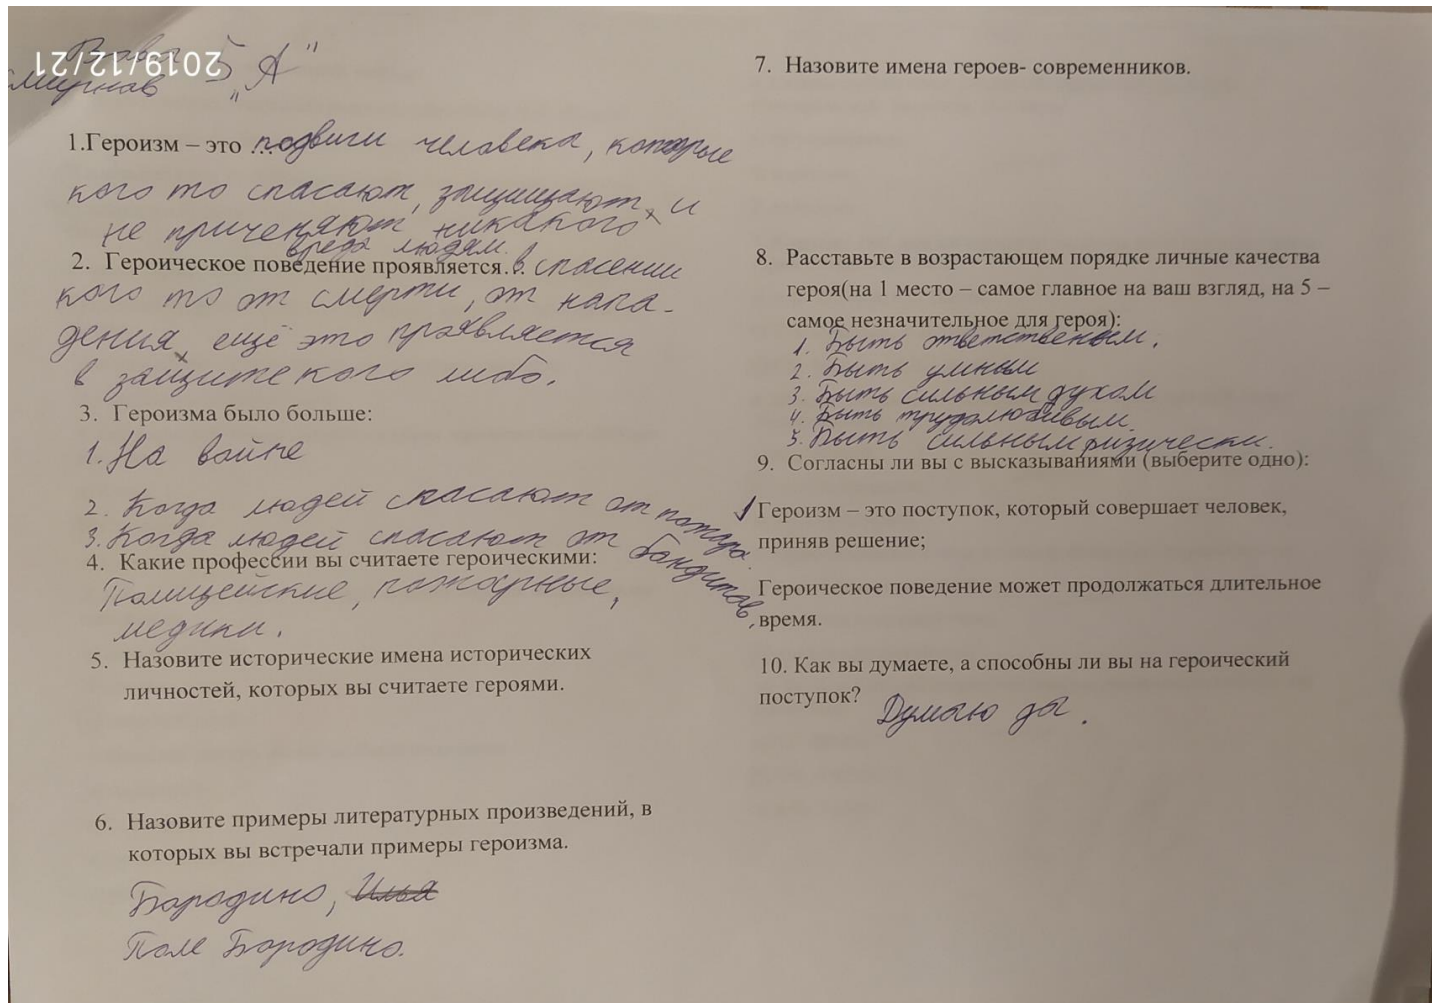 Вова 5 „А"
Смирнов
2019/12/21
1.Героизм – это ... подвиги человека, которые
кого то спасают, защищают и
не приченяют никакого
вреда людям.
2. Героическое поведение проявляется... в спасении
кого то от смерти, от напа-
дения, ещё это проявляется
в защите кого либо.
3. Героизма было больше:
1. На войне
2. Когда людей спасают от пожара.
3. Когда людей спасают от бандитов,
4. Какие профессии вы считаете героическими:
Полицейские, пожарные,
медики.
5. Назовите исторические имена исторических
личностей, которых вы считаете героями.
6. Назовите примеры литературных произведений, в
которых вы встречали примеры героизма.
Бородино, Илья
Поле Бородино.
7. Назовите имена героев- современников.
8. Расставьте в возрастающем порядке личные качества
героя(на 1 место – самое главное на ваш взгляд, на 5 –
самое незначительное для героя):
1. Быть ответственым.
2. Быть умным
3. Быть сильным духом
4. Быть трудолюбивым.
5. Быть сильным физически.
9. Согласны ли вы с высказываниями (выберите одно):
✓ Героизм – это поступок, который совершает человек,
приняв решение;
Героическое поведение может продолжаться длительное
время.
10. Как вы думаете, а способны ли вы на героический
поступок? Думаю да.